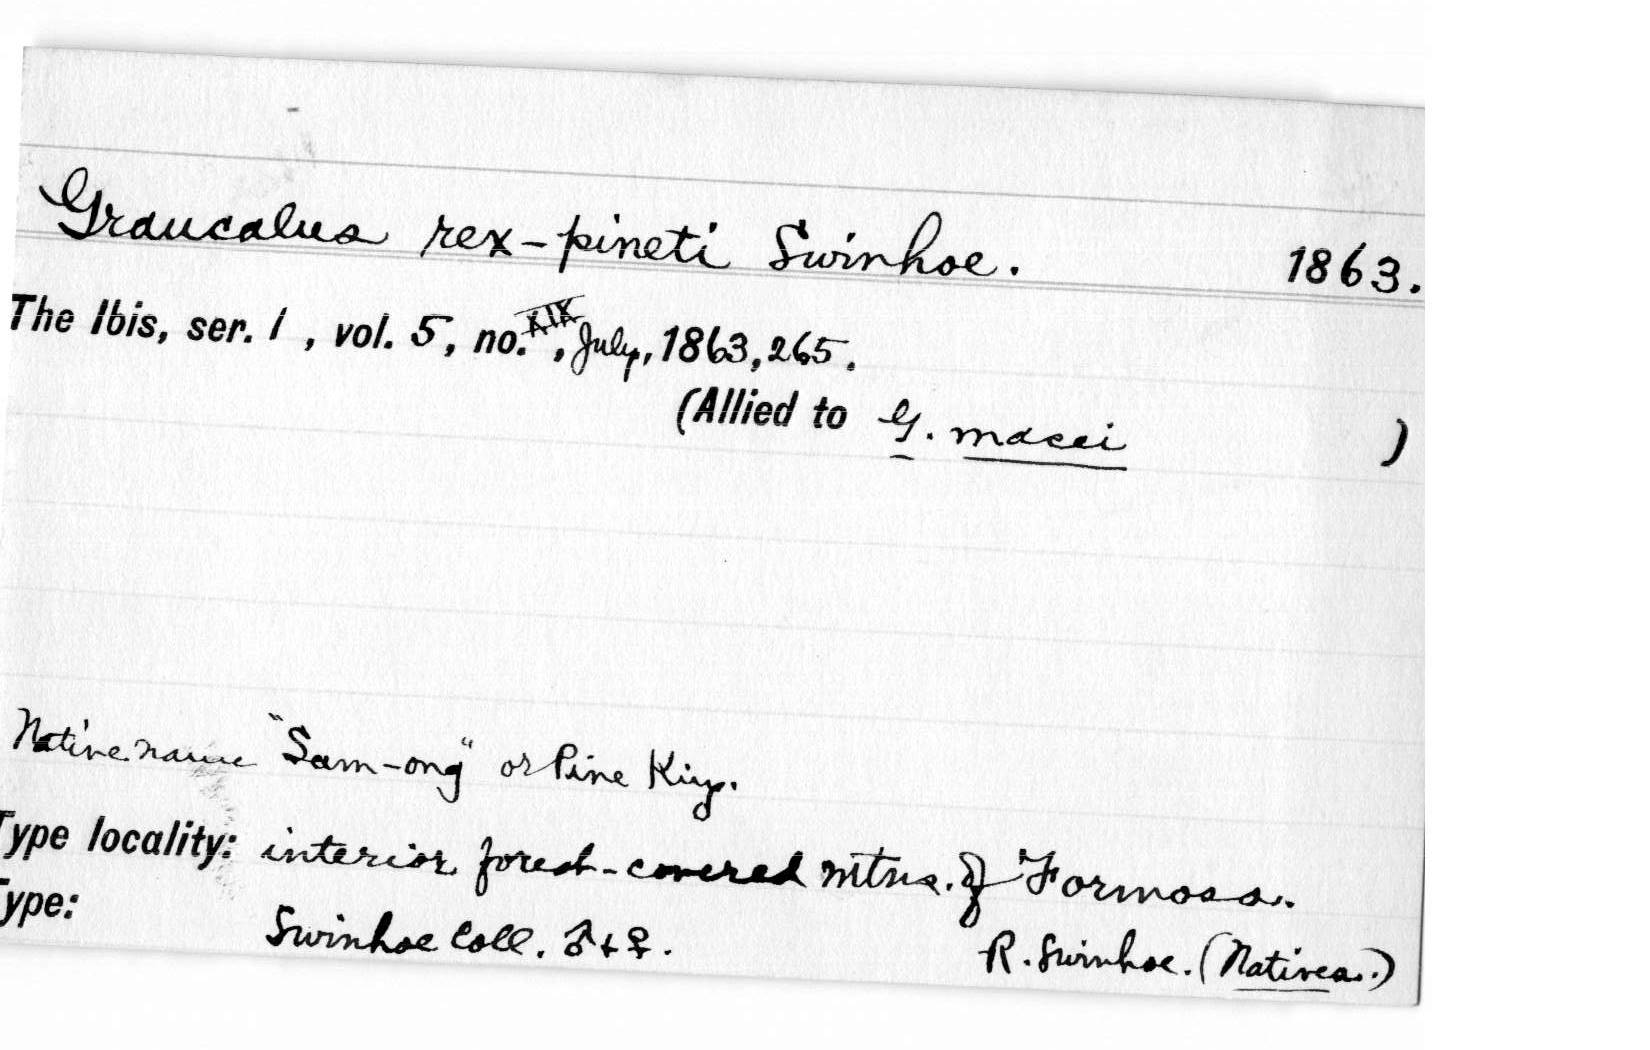 Graucalus rex-pineti Swinhoe. 1863.
The Ibis, ser. 1, vol. 5, no. XIX, July, 1863, 265.
(Allied to G. macei )
Native name "Sam-ong" or Pine King.
Type locality: interior forest-covered mtns. of Formosa.
Type: Swinhoe Coll. ♂ + ♀. R. Swinhoe. (Natives.)